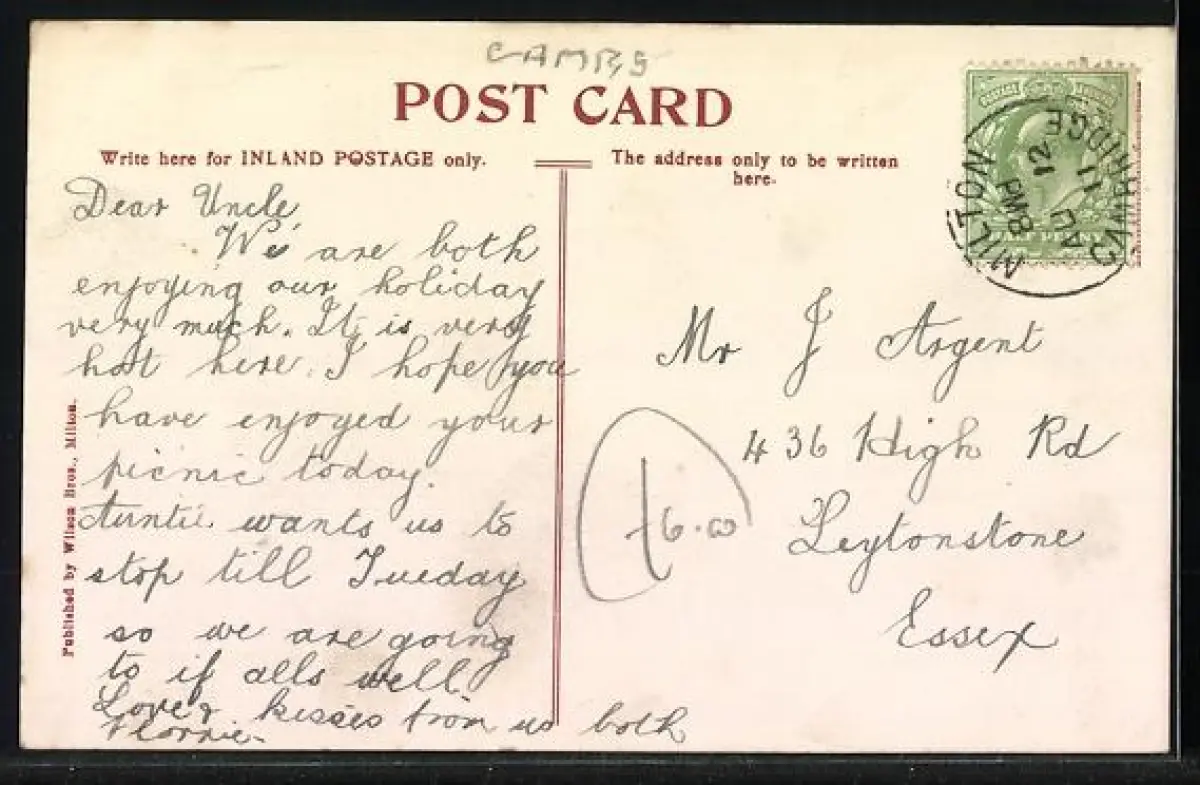 CAMBS
POST CARD
Write here for INLAND POSTAGE only.
The address only to be written
here.
Dear Uncle,
We are both
enjoying our holiday
very much. It is very
hot here. I hope you
have enjoyed your
picnic today.
Auntie wants us to
stop till Tueday
so we are going
to if alls well.
Love & kisses from us both
Florrie.
Published by Wilson Bros., Milton.
HALF PENNY
MILTON
CAMBRIDGE
8 PM
12
AU
11
Mr J Argent
436 High Rd
Leytonstone
Essex